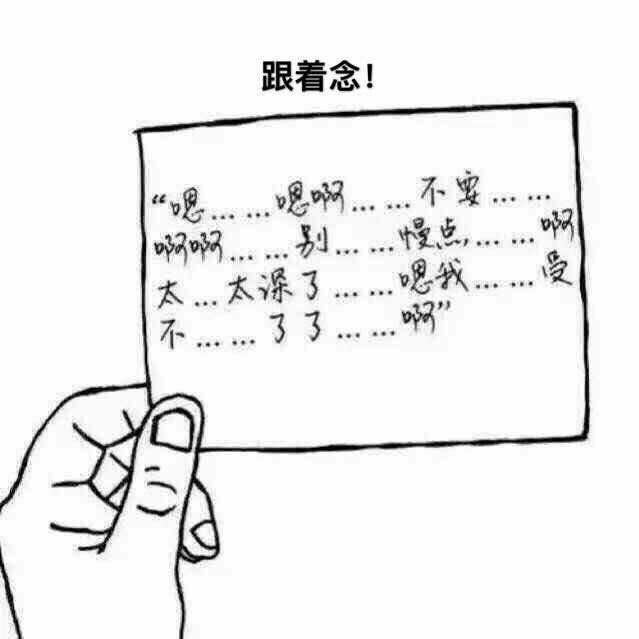 跟着念！
“嗯……嗯啊……不要……
啊啊……别……慢点……啊
太…太深了……嗯我……受
不……了了……啊”